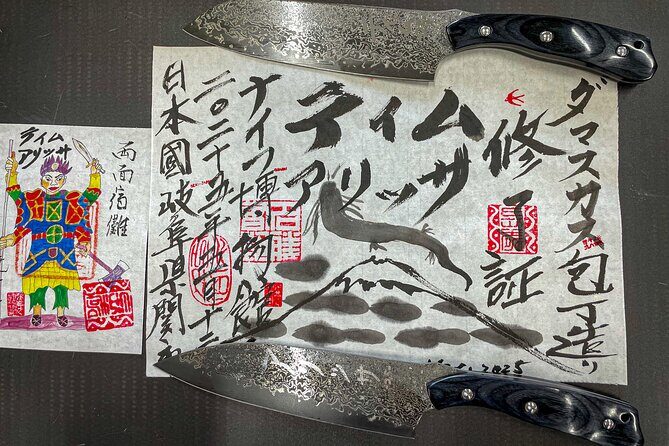 ダマスカス包丁造り
修了証
ティム
アリッサ
ナイフ博物館
二〇二十五年
日本國岐阜県関
2025
ティム
アリッサ
両面宿儺
アリッサ